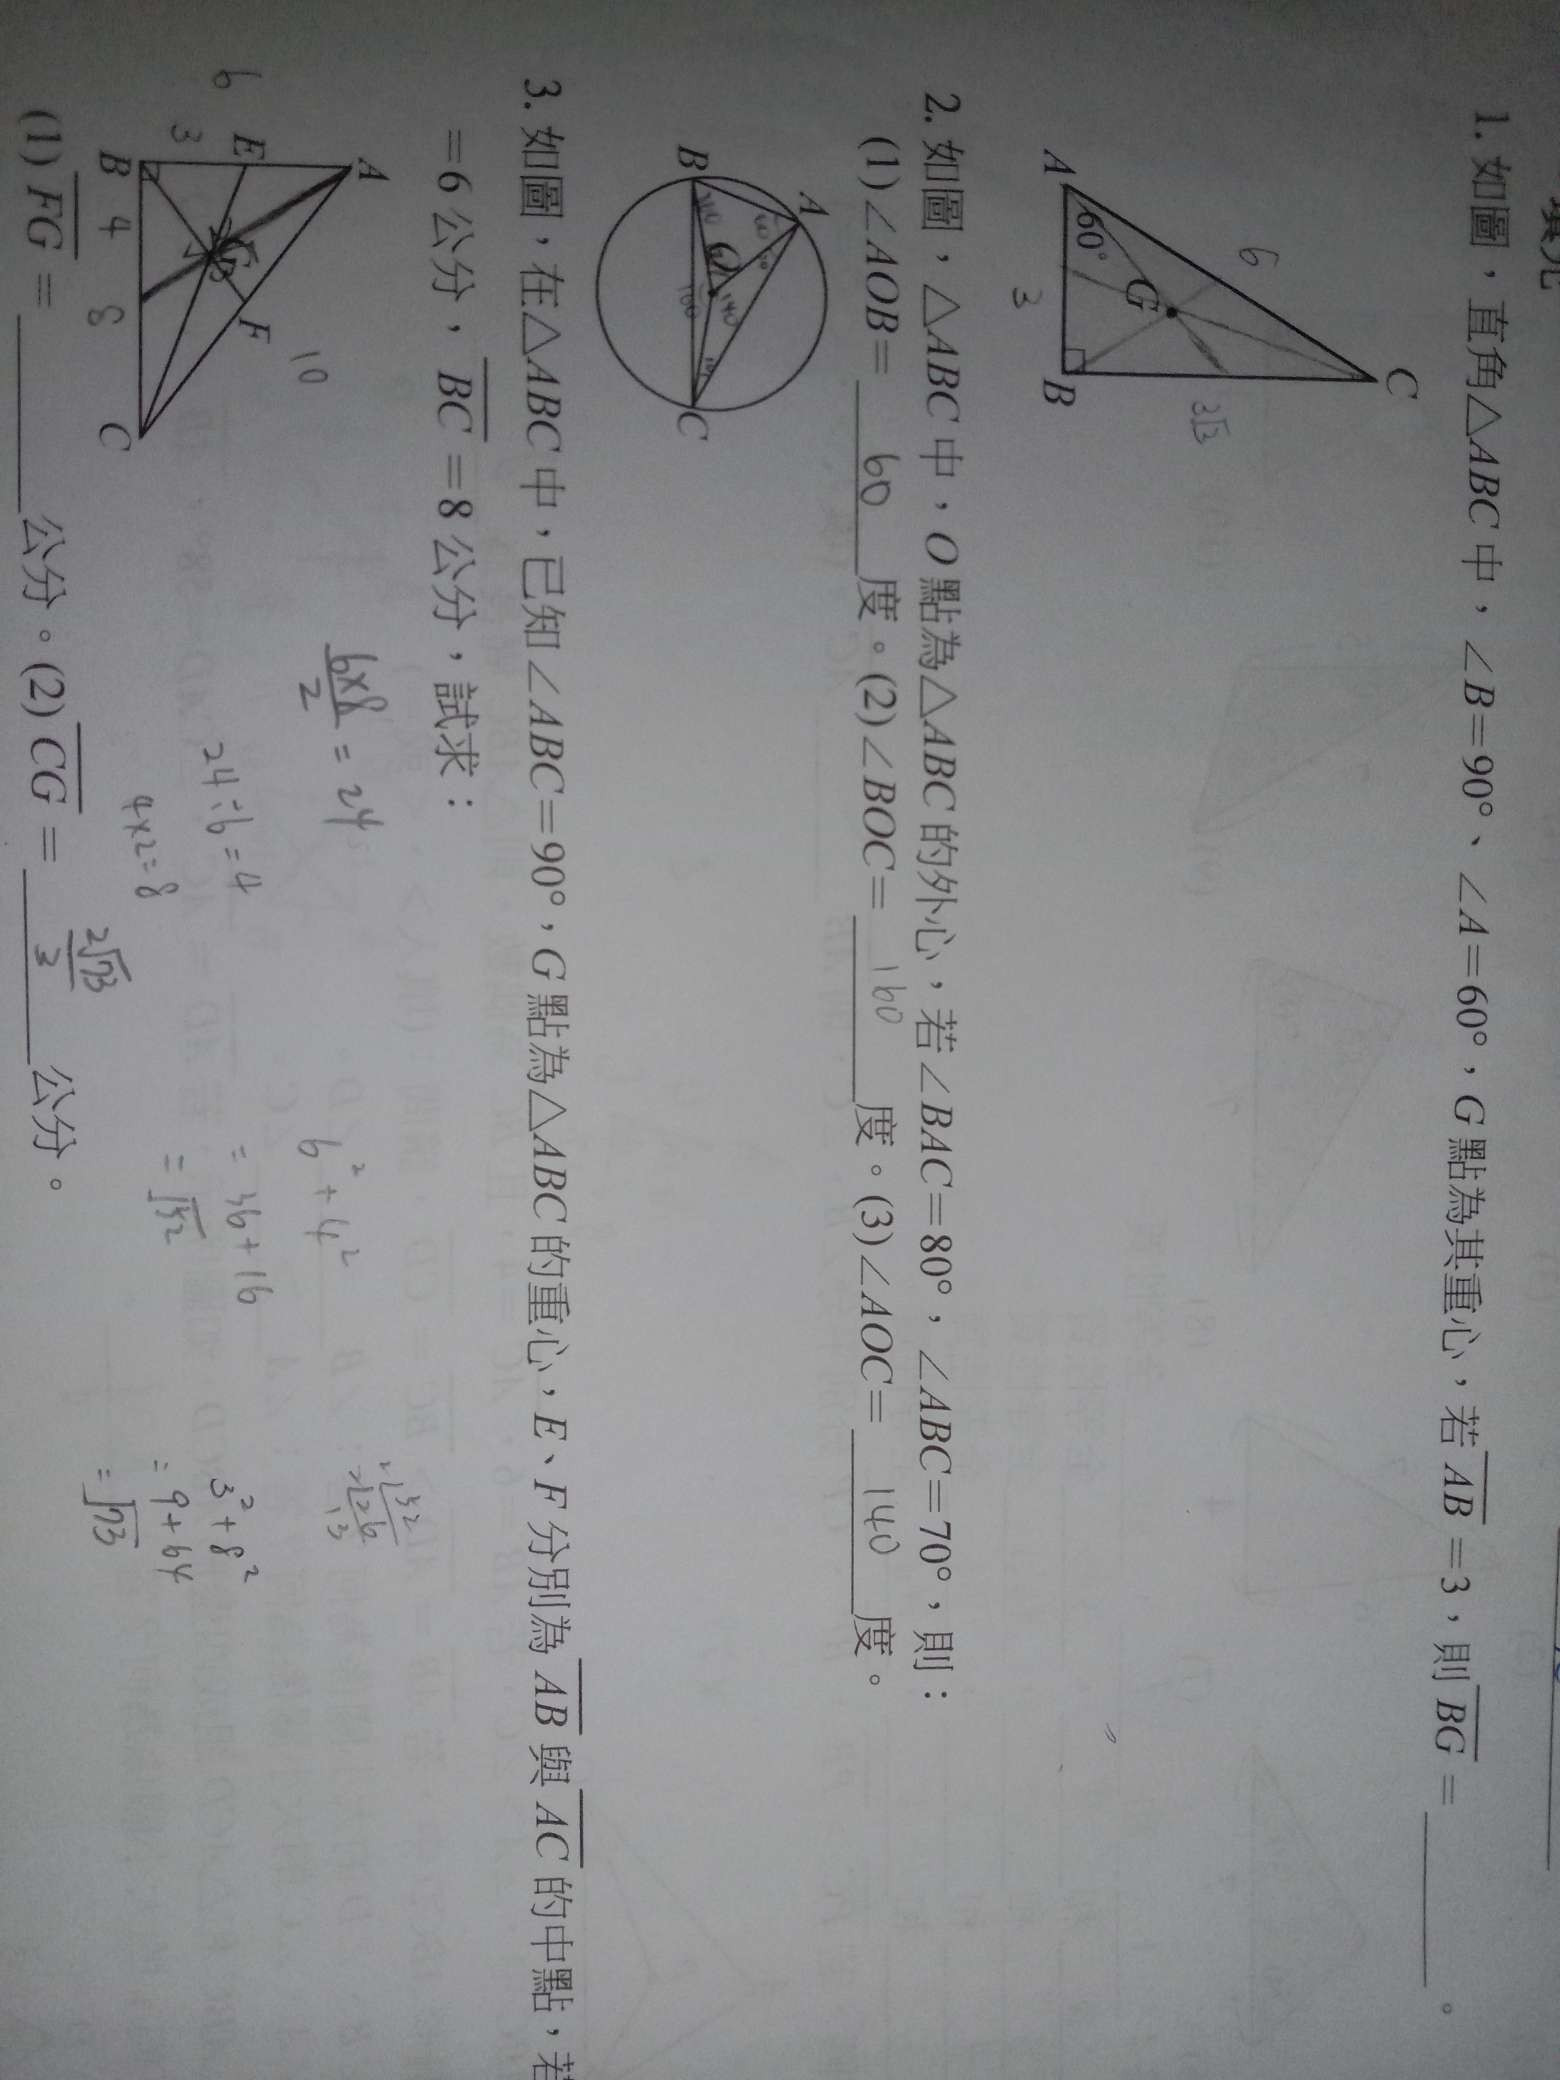 填充
1. 如圖，直角△ABC中，∠B=90°、∠A=60°，G點為其重心，若AB=3，則BG=＿＿＿。
A
60°
G
B
C
6
3
3√3
2. 如圖，△ABC中，O點為△ABC的外心，若∠BAC=80°，∠ABC=70°，則：
(1)∠AOB= 60 度。(2)∠BOC= 160 度。(3)∠AOC= 140 度。
A
B
O
C
140
160
3. 如圖，在△ABC中，已知∠ABC=90°，G點為△ABC的重心，E、F分別為AB與AC的中點，若
=6公分，BC=8公分，試求：
A
E
B
F
G
C
6
3
4
8
10
6×8/2=24
24÷6=4
4×2=8
6²+4²
=36+16
=√52
2√52
2√26
13
3²+8²
=9+64
=√73
(1)FG=＿＿＿公分。(2)CG= 2√73/3 公分。